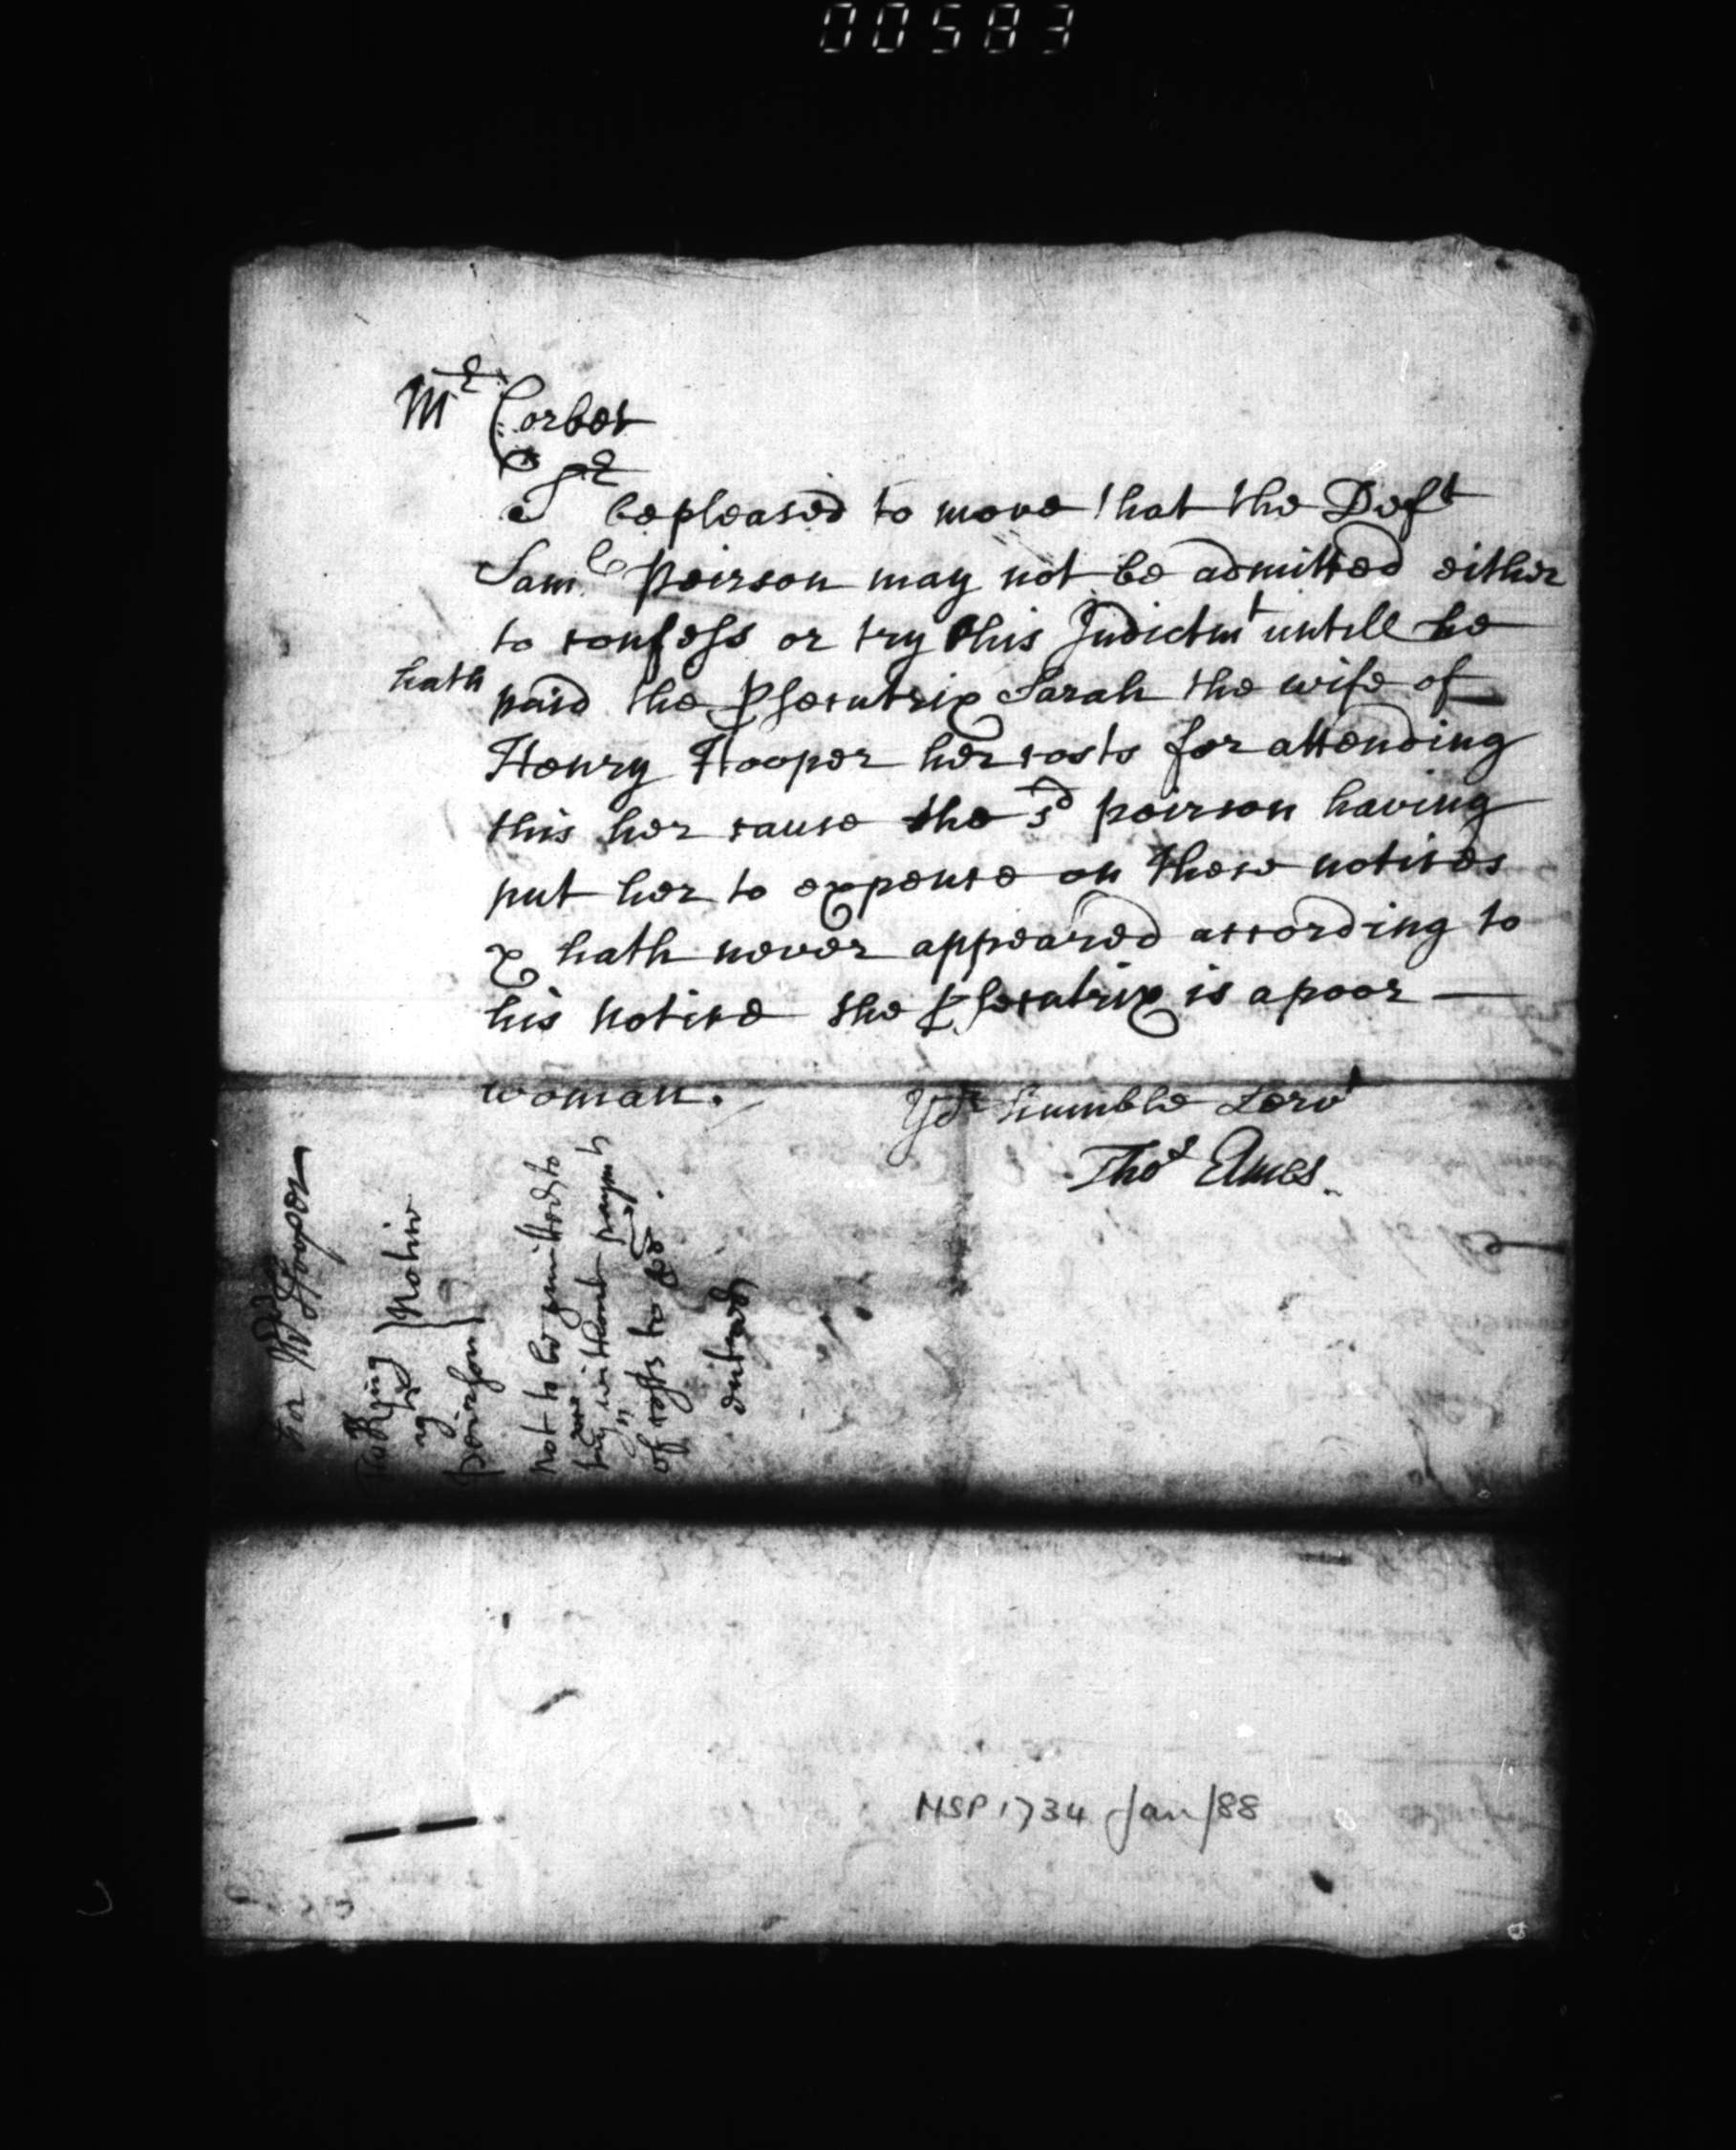 00583
Mr Corbet
Sr be pleased to move that the Deft
Saml Peirson may not be admitted either
to confess or try this Indictmt untill he
hath paid the Psecutrix Sarah the wife of
Henry Hooper her costs for attending
this her cause the sd peirson having
put her to expence on these notices
& hath never appeared according to
his notice the Psecutrix is a poor —
woman.
Yor humble Servt
Thos Ames.
Hooper
The King
agt
peirson
Motion
Not to be admitted to
try without paymt
of costs to be
MSP 1734 Jan/88